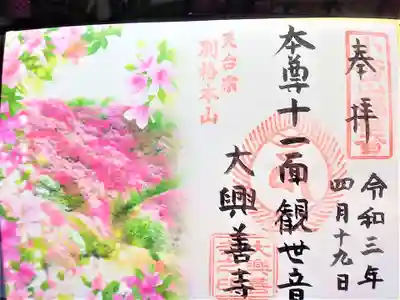 奉拝
令和三年
四月十九日
本尊十一面観世音
大興善寺
天台宗
別格本山